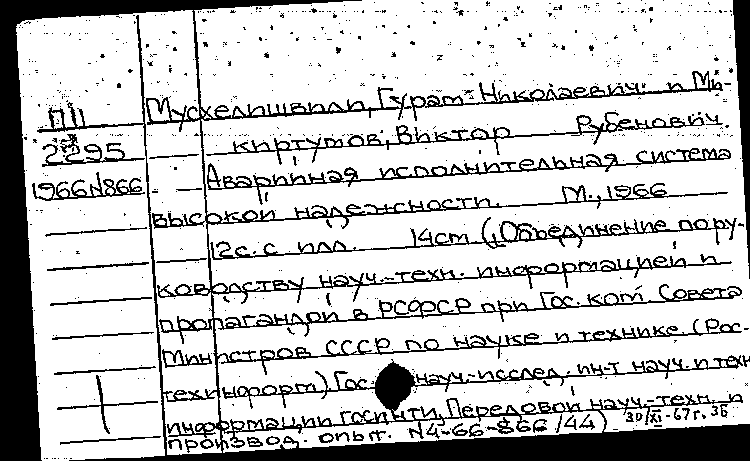 П11
2295
1966N866
Мусхелишвили, Гурам Николаевич. и Ми-
киртумов, Виктор Рубенович.
Аварийная исполнительная система
высокой надежности. М., 1966
12с. с илл. 14см (Объединение по ру-
ководству науч.-техн. информацией и
пропагандой в РСФСР при Гос. ком Совета
Министров СССР по науке и технике (Рос-
техинформ) Гос. науч.-исслед. ин-т науч. и техн
информации госинти, Передовой науч.-техн. и
производ. опыт. N4-66-866/44) 30/XI-67г. 36